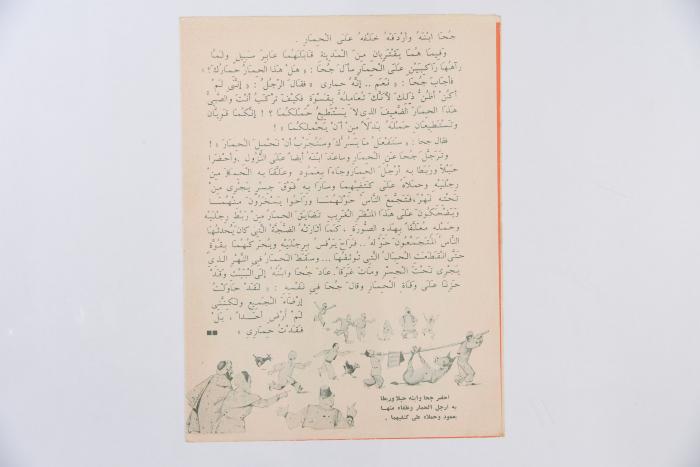 جُحَا ابْنَهُ وَأَرْدَفَهُ خَلْفَهُ عَلَى الْحِمَارِ .
وَفِيمَا هُمَا يَقْتَرِبَانِ مِنَ الْمَدِينَةِ قَابَلَهُمَا عَابِرُ سَبِيلٍ وَلَمَّا
رَآهُمَا رَاكِبَيْنِ عَلَى الْحِمَارِ سَأَلَ جُحَا : « هَلْ هَذَا الْحِمَارُ حِمَارُكَ ؟ »
فَأَجَابَ جُحَا : « نَعَمْ .. إِنَّهُ حِمَارِى » فَقَالَ الرَّجُلُ : « إِنَّنِى لَمْ
أَكُنْ أَظُنُّ ذَلِكَ لِأَنَّكَ تُعَامِلُهُ بِقَسْوَةٍ فَكَيْفَ تَرْكَبُ أَنْتَ وَالصَّبِىُّ
هَذَا الْحِمَارَ الضَّعِيفَ الَّذِى لَا يَسْتَطِيعُ حَمْلَكُمَا ؟ ! إِنَّكُمَا قَوِيَّانِ
وَتَسْتَطِيعَانِ حَمْلَهُ بَدَلًا مِنْ أَنْ يَحْمِلَكُمَا » !
فقال جحا : « سَنَفْعَلُ مَا يَسُرُّكَ وَسَنُجَرِّبُ أَنْ نَحْمِلَ الْحِمَارَ » !
وَتَرَجَّلَ جُحَا عَنِ الْحِمَارِ وَسَاعَدَ ابْنَهُ أَيْضًا عَلَى النُّزُولِ . وَأَحْضَرَا
حَبْلًا وَرَبَطَا بِهِ أَرْجُلَ الْحِمَارِ وَجَاءَا بِعَمُودٍ وَعَلَّقَا بِهِ الْحِمَارَ مِنْ
رِجْلَيْهِ وَحَمَلَاهُ عَلَى كَتِفَيْهِمَا وَسَارَا بِهِ فَوْقَ جِسْرٍ يَجْرِى مِنْ
تَحْتِهِ نَهْرٌ ، فَتَجَمَّعَ النَّاسُ حَوْلَهُمَا وَرَاحُوا يَسْخَرُونَ مِنْهُمَا
وَيَضْحَكُونَ عَلَى هَذَا الْمَنْظَرِ الْغَرِيبِ تَضَايَقَ الْحِمَارُ مِنْ رَبْطِ رِجْلَيْهِ
وَحَمْلِهِ مُعَلَّقًا بِهَذِهِ الصُّورَةِ ، كَمَا أَثَارَتْهُ الضَّجَّةُ الَّتِى كَانَ يُحْدِثُهَا
النَّاسُ الْمُتَجَمِّعُونَ حَوْلَهُ .. فَرَاحَ يَرْفُسُ بِرِجْلَيْهِ وَيُحَرِّكُهُمَا بِقُوَّةٍ
حَتَّى انْقَطَعَتِ الْحِبَالُ الَّتِى تُوثِقُهَا ... وَسَقَطَ الْحِمَارُ فِى النَّهْرِ الَّذِى
يَجْرِى تَحْتَ الْجِسْرِ وَمَاتَ غَرَقًا . عَادَ جُحَا وَابْنُهُ إِلَى الْبَيْتِ وَقَدْ
حَزِنَا عَلَى وَفَاةِ الْحِمَارِ وَقَالَ جُحَا فِى نَفْسِهِ : « لَقَدْ حَاوَلْتُ
إِرْضَاءَ الْجَمِيعِ وَلَكِنَّنِى
لَمْ أُرْضِ أَحَدًا ، بَلْ
فَقَدْتُ حِمَارِى »
احضر جحا وابنه حبلا وربطا
به ارجل الحمار وعلقاه منها
بعمود وحملاه على كتفيهما .